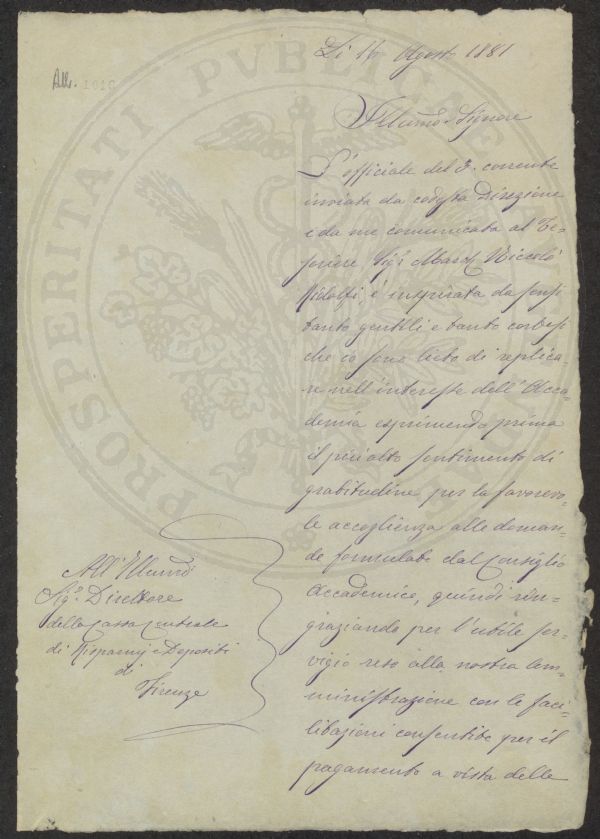 Li 16 Agosto 1881
All. 1010
Illumo Signore
L'officiale del 3. corrente
inviata da codesta Direzione
e da me comunicata al Te-
soriere Sigr March Niccolò
Ridolfi, è inspirata da sensi
tanto gentili e tanto cortesi
che io sono lieto di replica-
re nell'interesse dell'Acca-
demia esprimendo prima
il più alto sentimento di
gratitudine per la favorevo-
le accoglienza alle doman-
de formulate dal Consiglio
Accademico, quindi rin-
graziando per l'utile ser-
vigio reso alla nostra Am-
ministrazione con le faci-
litazioni consentite per il
pagamento a vista delle
All'Illumo
Sigr. Direttore
della Cassa Centrale
di Risparmj e Depositi
di
Firenze
PROSPERITATI PVBLICAE